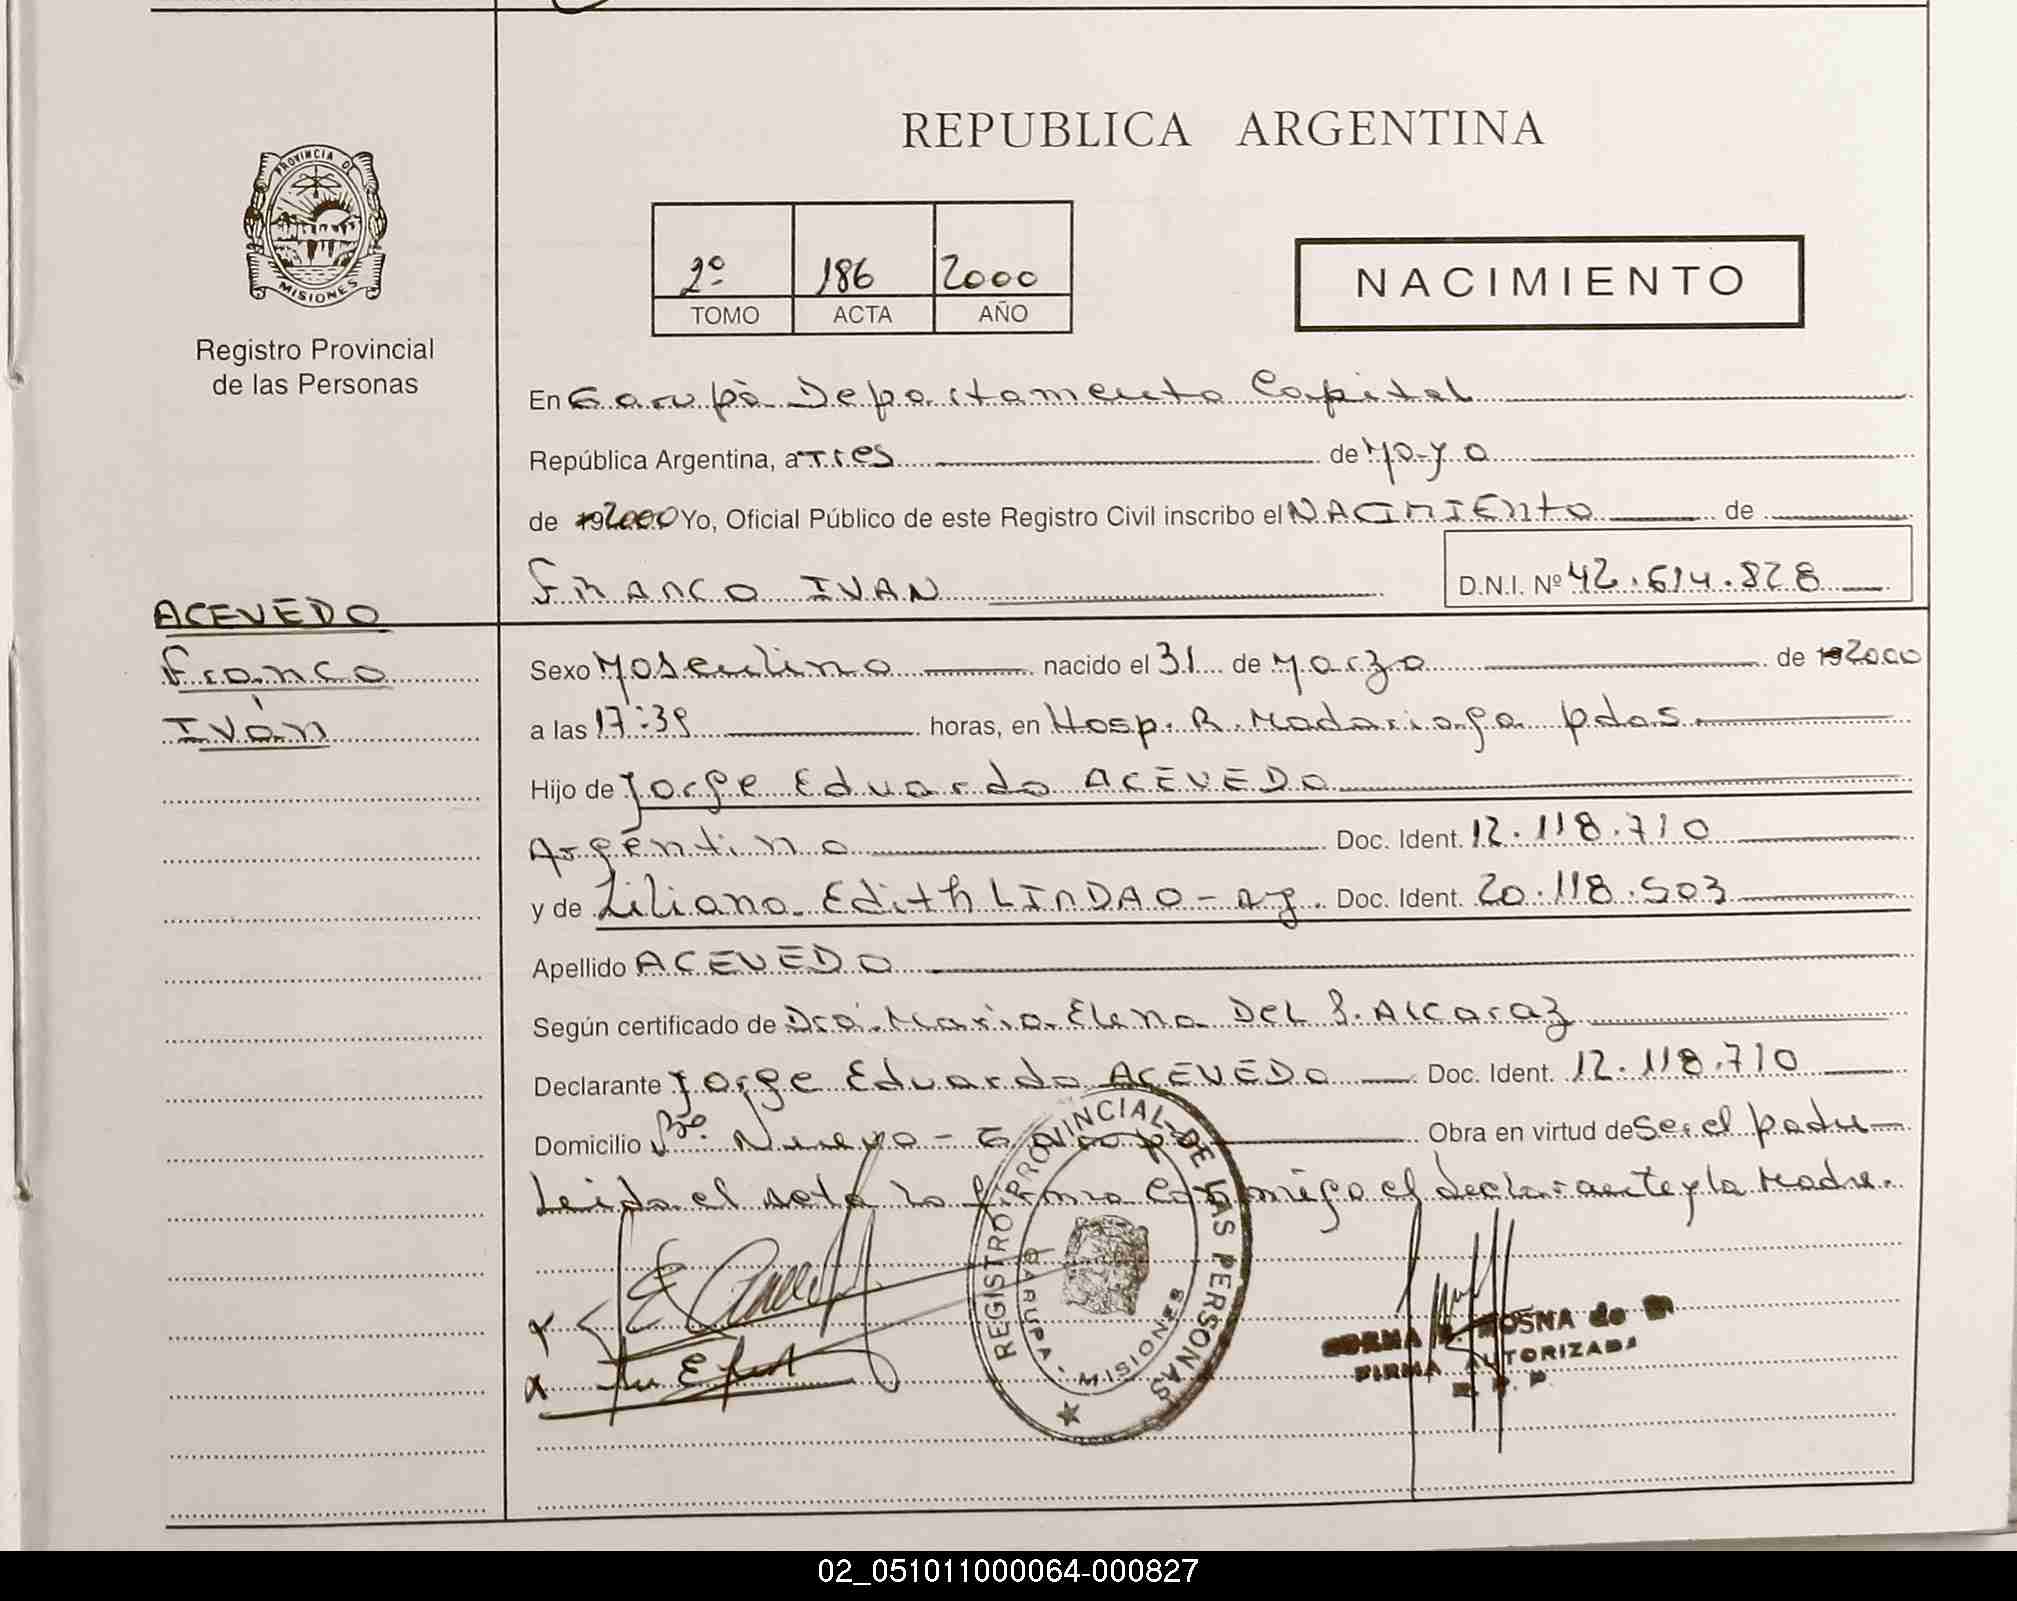 REPUBLICA ARGENTINA
PROVINCIA DE
MISIONES
Registro Provincial
de las Personas
2º 186 2000
TOMO ACTA AÑO
NACIMIENTO
En Garupà Departamento Capital
República Argentina, a Tres de Mayo
de 192000 Yo, Oficial Público de este Registro Civil inscribo el NACIMIENTO de
FRANCO IVAN D.N.I. Nº 42.614.828
ACEVEDO
Franco
Iván
Sexo Masculino nacido el 31 de Marzo de 192000
a las 17:39 horas, en Hosp. R. Madariaga pdas
Hijo de Jorge Eduardo ACEVEDO
Argentino Doc. Ident. 12.118.710
y de Liliana Edith LINDAO - arg. Doc. Ident. 20.118.503
Apellido ACEVEDO
Según certificado de Dra. Maria Elena Del S. Alcaraz
Declarante Jorge Eduardo ACEVEDO Doc. Ident. 12.118.710
Domicilio Bº. Nuevo - Garupá Obra en virtud de Ser el padre
Leida el acta la firma conmigo el declarante y la Madre.
REGISTRO PROVINCIAL DE LAS PERSONAS
GARUPA - MISIONES
x
x
NORMA MOSNA de
FIRMA AUTORIZADA
02_051011000064-000827